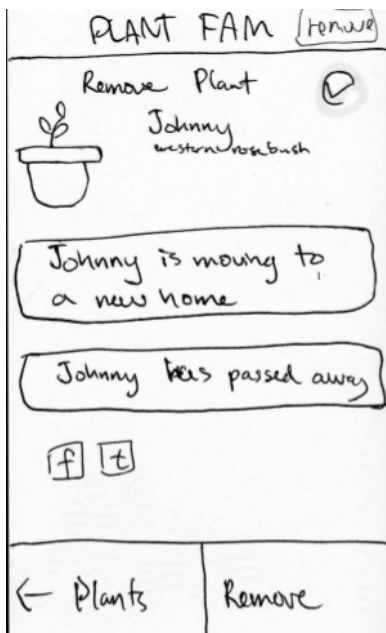 PLANT FAM remove
Remove Plant
Johnny
western rosebush
Johnny is moving to
a new home
Johnny has passed away
f t
← Plants Remove